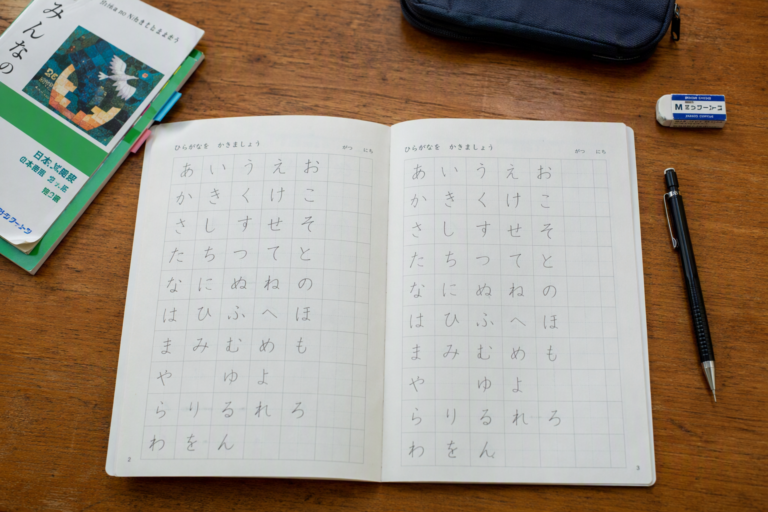 みんなの
ひらがなを かきましょう
がつ にち
あ い う え お
か き く け こ
さ し す せ そ
た ち つ て と
な に ぬ ね の
は ひ ふ へ ほ
ま み む め も
や ゆ よ
ら り る れ ろ
わ を ん
ひらがなを かきましょう
がつ にち
あ い う え お
か き く け こ
さ し す せ そ
た ち つ て と
な に ぬ ね の
は ひ ふ へ ほ
ま み む め も
や ゆ よ
ら り る れ ろ
わ を ん
M